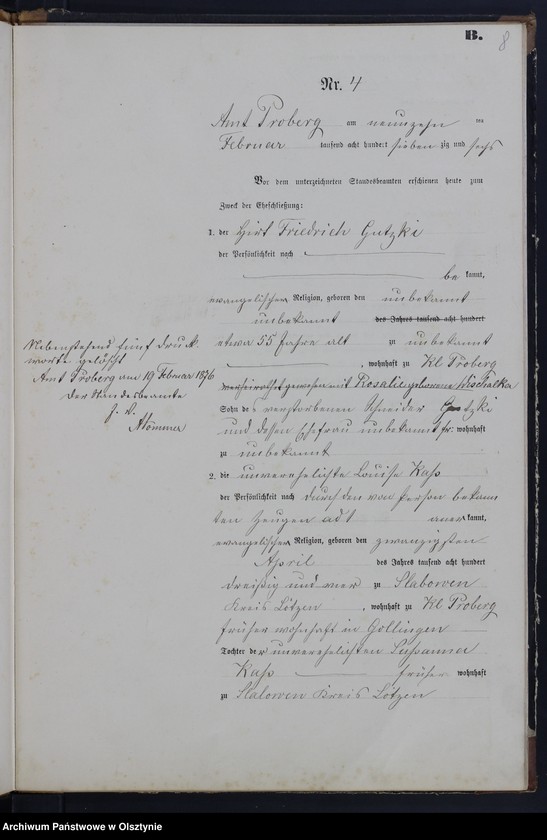 B.
8
Nr. 4
Amt Proberg am neunzehn ten
Februar tausend acht hundert sieben zig und sechs
Vor dem unterzeichneten Standesbeamten erschienen heute zum
Zweck der Eheschließung:
1. der Hirt Friedrich Gutzki
der Persönlichkeit nach
be kannt,
evangelischer Religion, geboren den unbekannt
unbekannt des Jahres tausend acht hundert
etwa 55 Jahre alt zu unbekannt
, wohnhaft zu Kl Proberg
verheirathet gewesen mit Rosalie geborene
Sohn des verstorbenen Schneider Gutzki
und dessen Ehefrau unbekannt fr: wohnhaft
zu unbekannt
2. die unverehelichte Louise Kass
der Persönlichkeit nach durch den von Person bekann
ten Zeugen ad 1 aner kannt,
evangelischer Religion, geboren den zwanzigsten
April des Jahres tausend acht hundert
dreißig und vier zu Slabowen
Kreis Lötzen, wohnhaft zu Kl Proberg
früher wohnhaft in Gollingen
Tochter der unverehelichten Sussanna
Kass früher wohnhaft
zu Slabowen Kreis Lötzen
Nebenstehend fünf Druck-
worte gelöscht
Amt Proberg am 19 Februar 1876
Der Standesbeamte
Archiwum Państwowe w Olsztynie